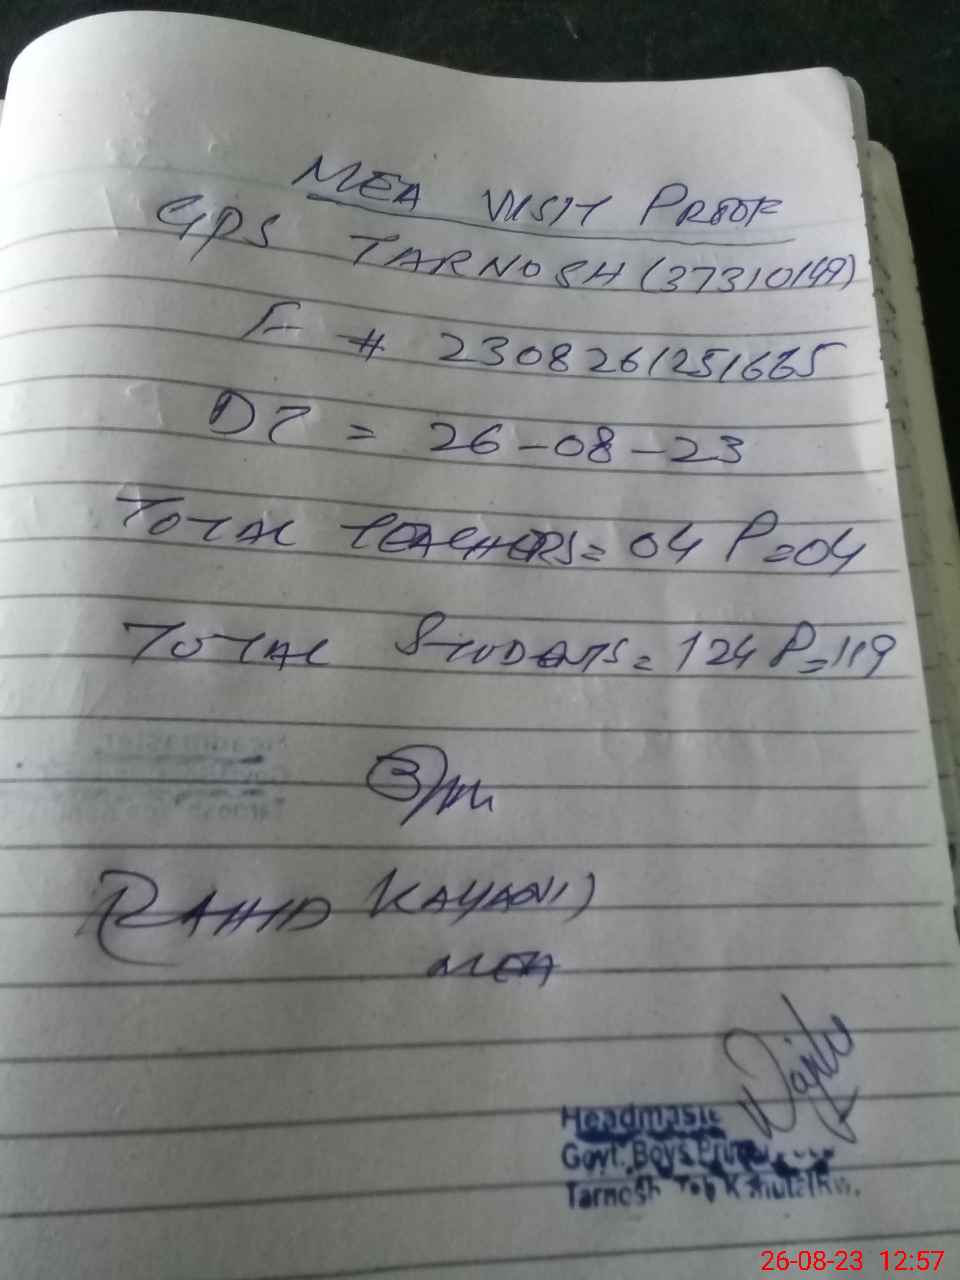 MEA VISIT PROOF
GPS TARNOSH (37310149)
F # 2308261251665
DT = 26-08-23
TOTAL TEACHERS = 04 P=04
TOTAL STUDENTS = 124 P=119
KAYANI
MEA
Headmaste
Govt. Boys
Tarnosh Teh Kahuta
26-08-23 12:57